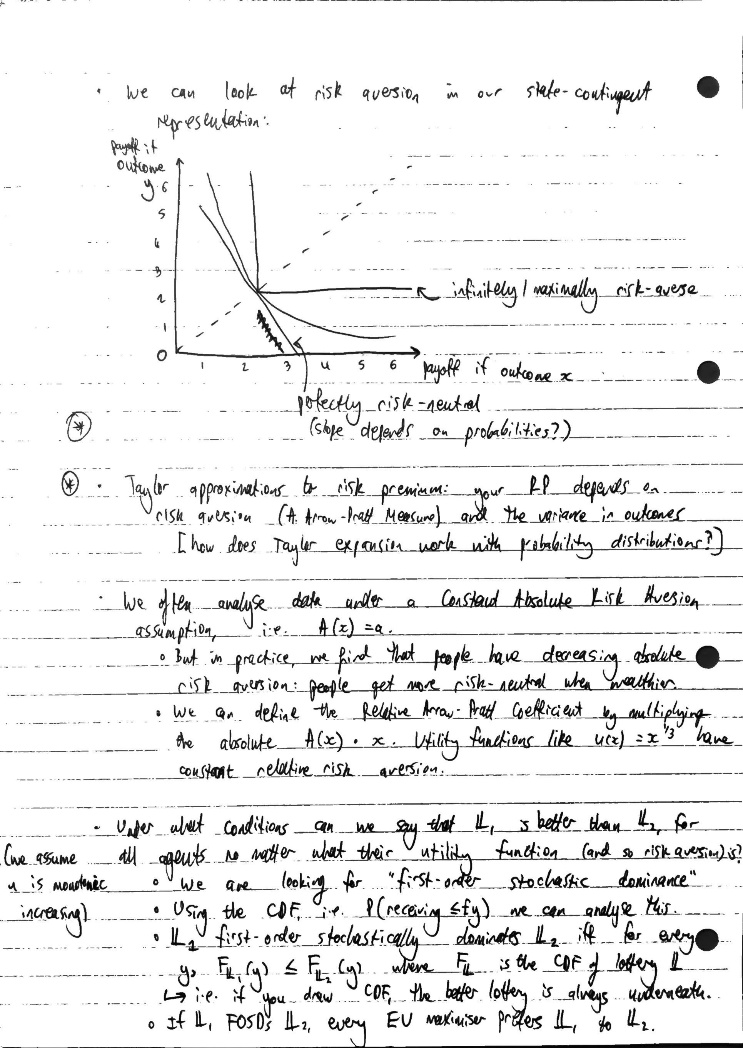 • We can look at risk aversion in our state-contingent
representation:
payoff if
outcome
y
6
5
4
3
2
1
0
1 2 3 4 5 6
payoff if outcome x
← infinitely / maximally risk-averse
perfectly risk-neutral
(slope depends on probabilities?)
*
* • Taylor approximations to risk premium: your RP depends on
risk aversion (A. Arrow-Pratt Measure) and the variance in outcomes
[how does Taylor expansion work with probability distributions?]
• We often analyse data under a Constant Absolute Risk Aversion
assumption, i.e. A(x) = a.
◦ But in practice, we find that people have decreasing absolute
risk aversion: people get more risk-neutral when wealthier.
• We can define the Relative Arrow-Pratt Coefficient by multiplying
the absolute A(x) · x. Utility functions like u(x) = x^1/3 have
constant relative risk aversion.
• Under what conditions can we say that 𝕃₁ is better than 𝕃₂, for
all agents no matter what their utility function (and so risk aversion) is?
(we assume
u is monotonic
increasing)
◦ We are looking for "first-order stochastic dominance"
• Using the CDF, i.e. P(receiving ≤ £y) we can analyse this.
• 𝕃₂ first-order stochastically dominates 𝕃₂ iff for every
y, F𝕃₁(y) ≤ F𝕃₂(y) where F𝕃 is the CDF of lottery 𝕃
↳ i.e. if you draw CDF, the better lottery is always underneath.
◦ If 𝕃₁ FOSDs 𝕃₂, every EU maximiser prefers 𝕃₁ to 𝕃₂.